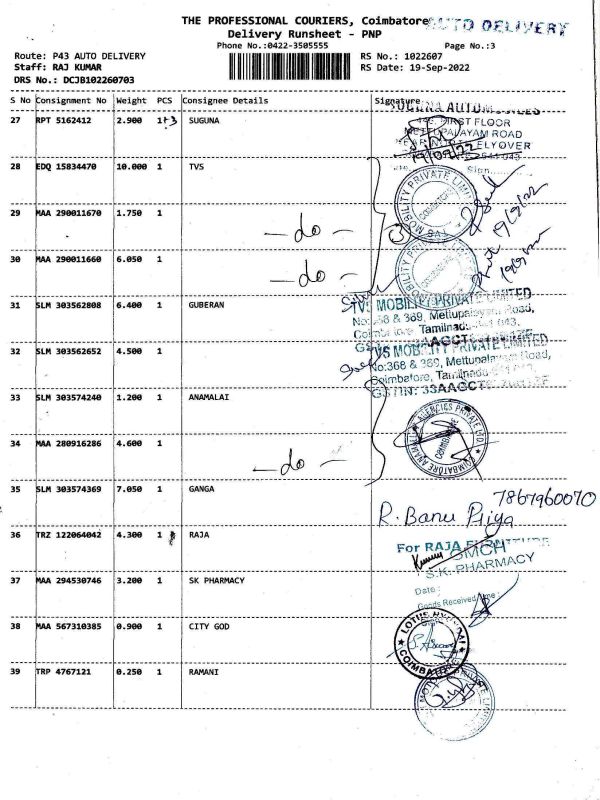 THE PROFESSIONAL COURIERS, Coimbatore AUTO DELIVERY
Delivery Runsheet - PNP
Phone No.:0422-3505555 Page No.:3
Route: P43 AUTO DELIVERY RS No.: 1022607
Staff: RAJ KUMAR RS Date: 19-Sep-2022
DRS No.: DCJB102260703
S No Consignment No Weight PCS Consignee Details Signature
27 RPT 5162412 2.900 1+3 SUGUNA
FIRST FLOOR
METTUPALAYAM ROAD
19/09/22
28 EDQ 15834470 10.000 1 TVS
MOBILITY PRIVATE LIMITED
COIMBATORE
29 MAA 290011670 1.750 1
- do -
3
19/9/22
30 MAA 290011660 6.050 1
- do -
31 SLM 303562808 6.400 1 GUBERAN
TVS MOBILITY PRIVATE LIMITED
No:368 & 369, Mettupalayam Road,
Coimbatore, Tamilnadu
32 SLM 303562652 4.500 1
TVS MOBILITY PRIVATE LIMITED
No:368 & 369, Mettupalayam Road,
Coimbatore, Tamilnadu
GSTIN: 33AAGCT
33 SLM 303574240 1.200 1 ANAMALAI
AGENCIES PRIVATE LTD.
COIMBATORE
34 MAA 280916286 4.600 1
- do -
35 SLM 303574369 7.050 1 GANGA
7867960070
R. Banu Priya
36 TRZ 122064042 4.300 1 RAJA
For RAJA FURNITURE
37 MAA 294530746 3.200 1 SK PHARMACY
GMCH
S.K. PHARMACY
Date:
Goods Received
38 MAA 567310385 0.900 1 CITY GOD
LOTUS HYUNDAI
COIMBATORE
39 TRP 4767121 0.250 1 RAMANI